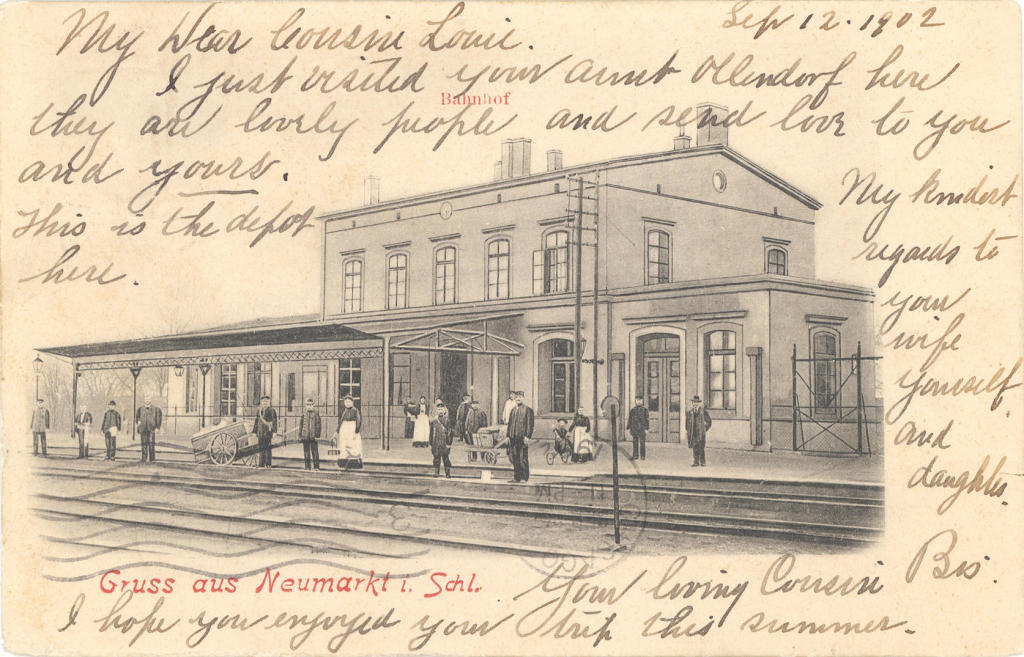 Sep 12. 1902
My Dear Cousin Louie.
I just visited your aunt Ollendorf here
Bahnhof
they are lovely people and send love to you
and yours.
This is the depot
here.
My kindest
regards to
your
wife
yourself
and
daughter.
Gruss aus Neumarkt i. Schl.
Your loving Cousin
I hope you enjoyed your trip this summer.